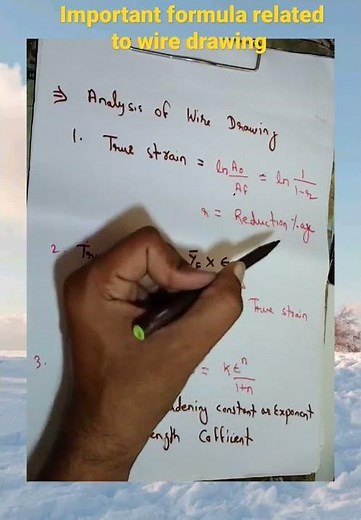 Important formula related
to wire drawing
⇒ Analysis of Wire Drawing
1. True strain = ln A₀/Af = ln 1/(1-r)
r = Reduction %age
2. Ȳf × ε
True strain
3. = Kεⁿ/(1+n)
constant or Exponent
Cofficient